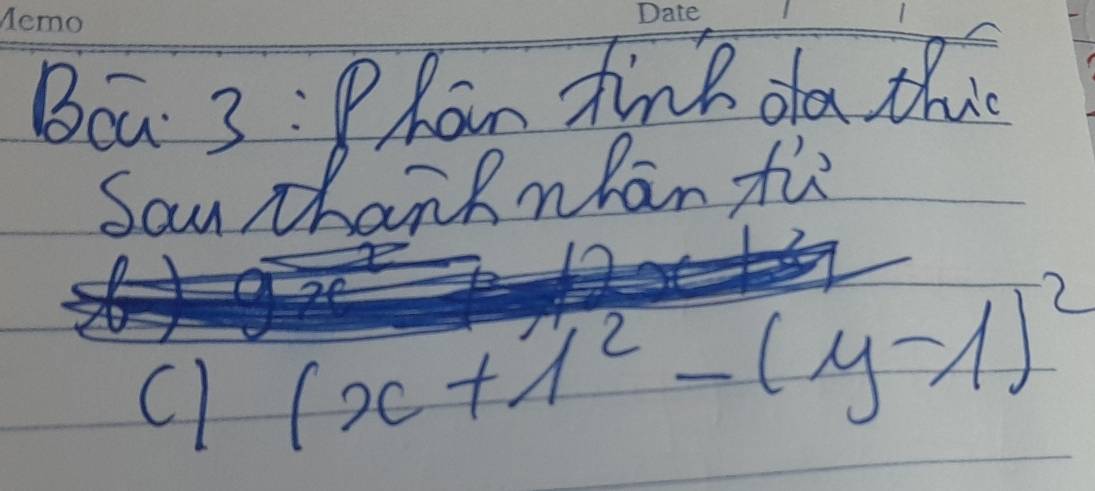 Memo Date / /
Bài 3: Phân tính đa thức
sau thành nhân tử
c) (x+1² - (y-1)²